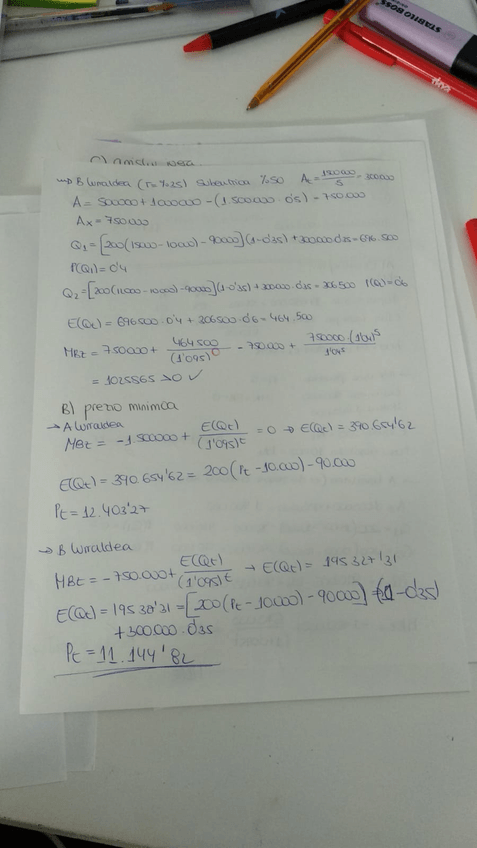 → B lurraldea (T=%35) Subentzioa %50 At = 1500000/5 = 300000
A = 500000 + 1000000 - (1.500.000 · 0'5) = 750.000
Ax = 750.000
Q1 = [200(15000 - 10000) - 90000](1-0'35) + 300000·0'35 = 696.500
P(Q1) = 0'4
Q2 = [200(12000 - 10000) - 90000](1-0'35) + 300000·0'35 = 306500 P(Q2) = 0'6
E(Qt) = 696500·0'4 + 306500·0'6 = 464.500
MBt = 750000 + 464500/(1'095) - 750.000 + 750000·(1'04)^5
= 1025865 >0 ✓
B) prezio minimoa
→ A lurraldea
MBt = -1500000 + E(Qt)/(1'095)^t = 0 → E(Qt) = 390654'62
E(Qt) = 390654'62 = 200(Pt - 10.000) - 90.000
Pt = 12.403'27
→ B lurraldea
MBt = -750.000 + E(Qt)/(1'095)^t → E(Qt) = 195327'31
E(Qt) = 19530'31 = [200(Pt - 10000) - 90000] (1-0'35)
+300000·0'35
Pt = 11.144'82
STABILO BOSS